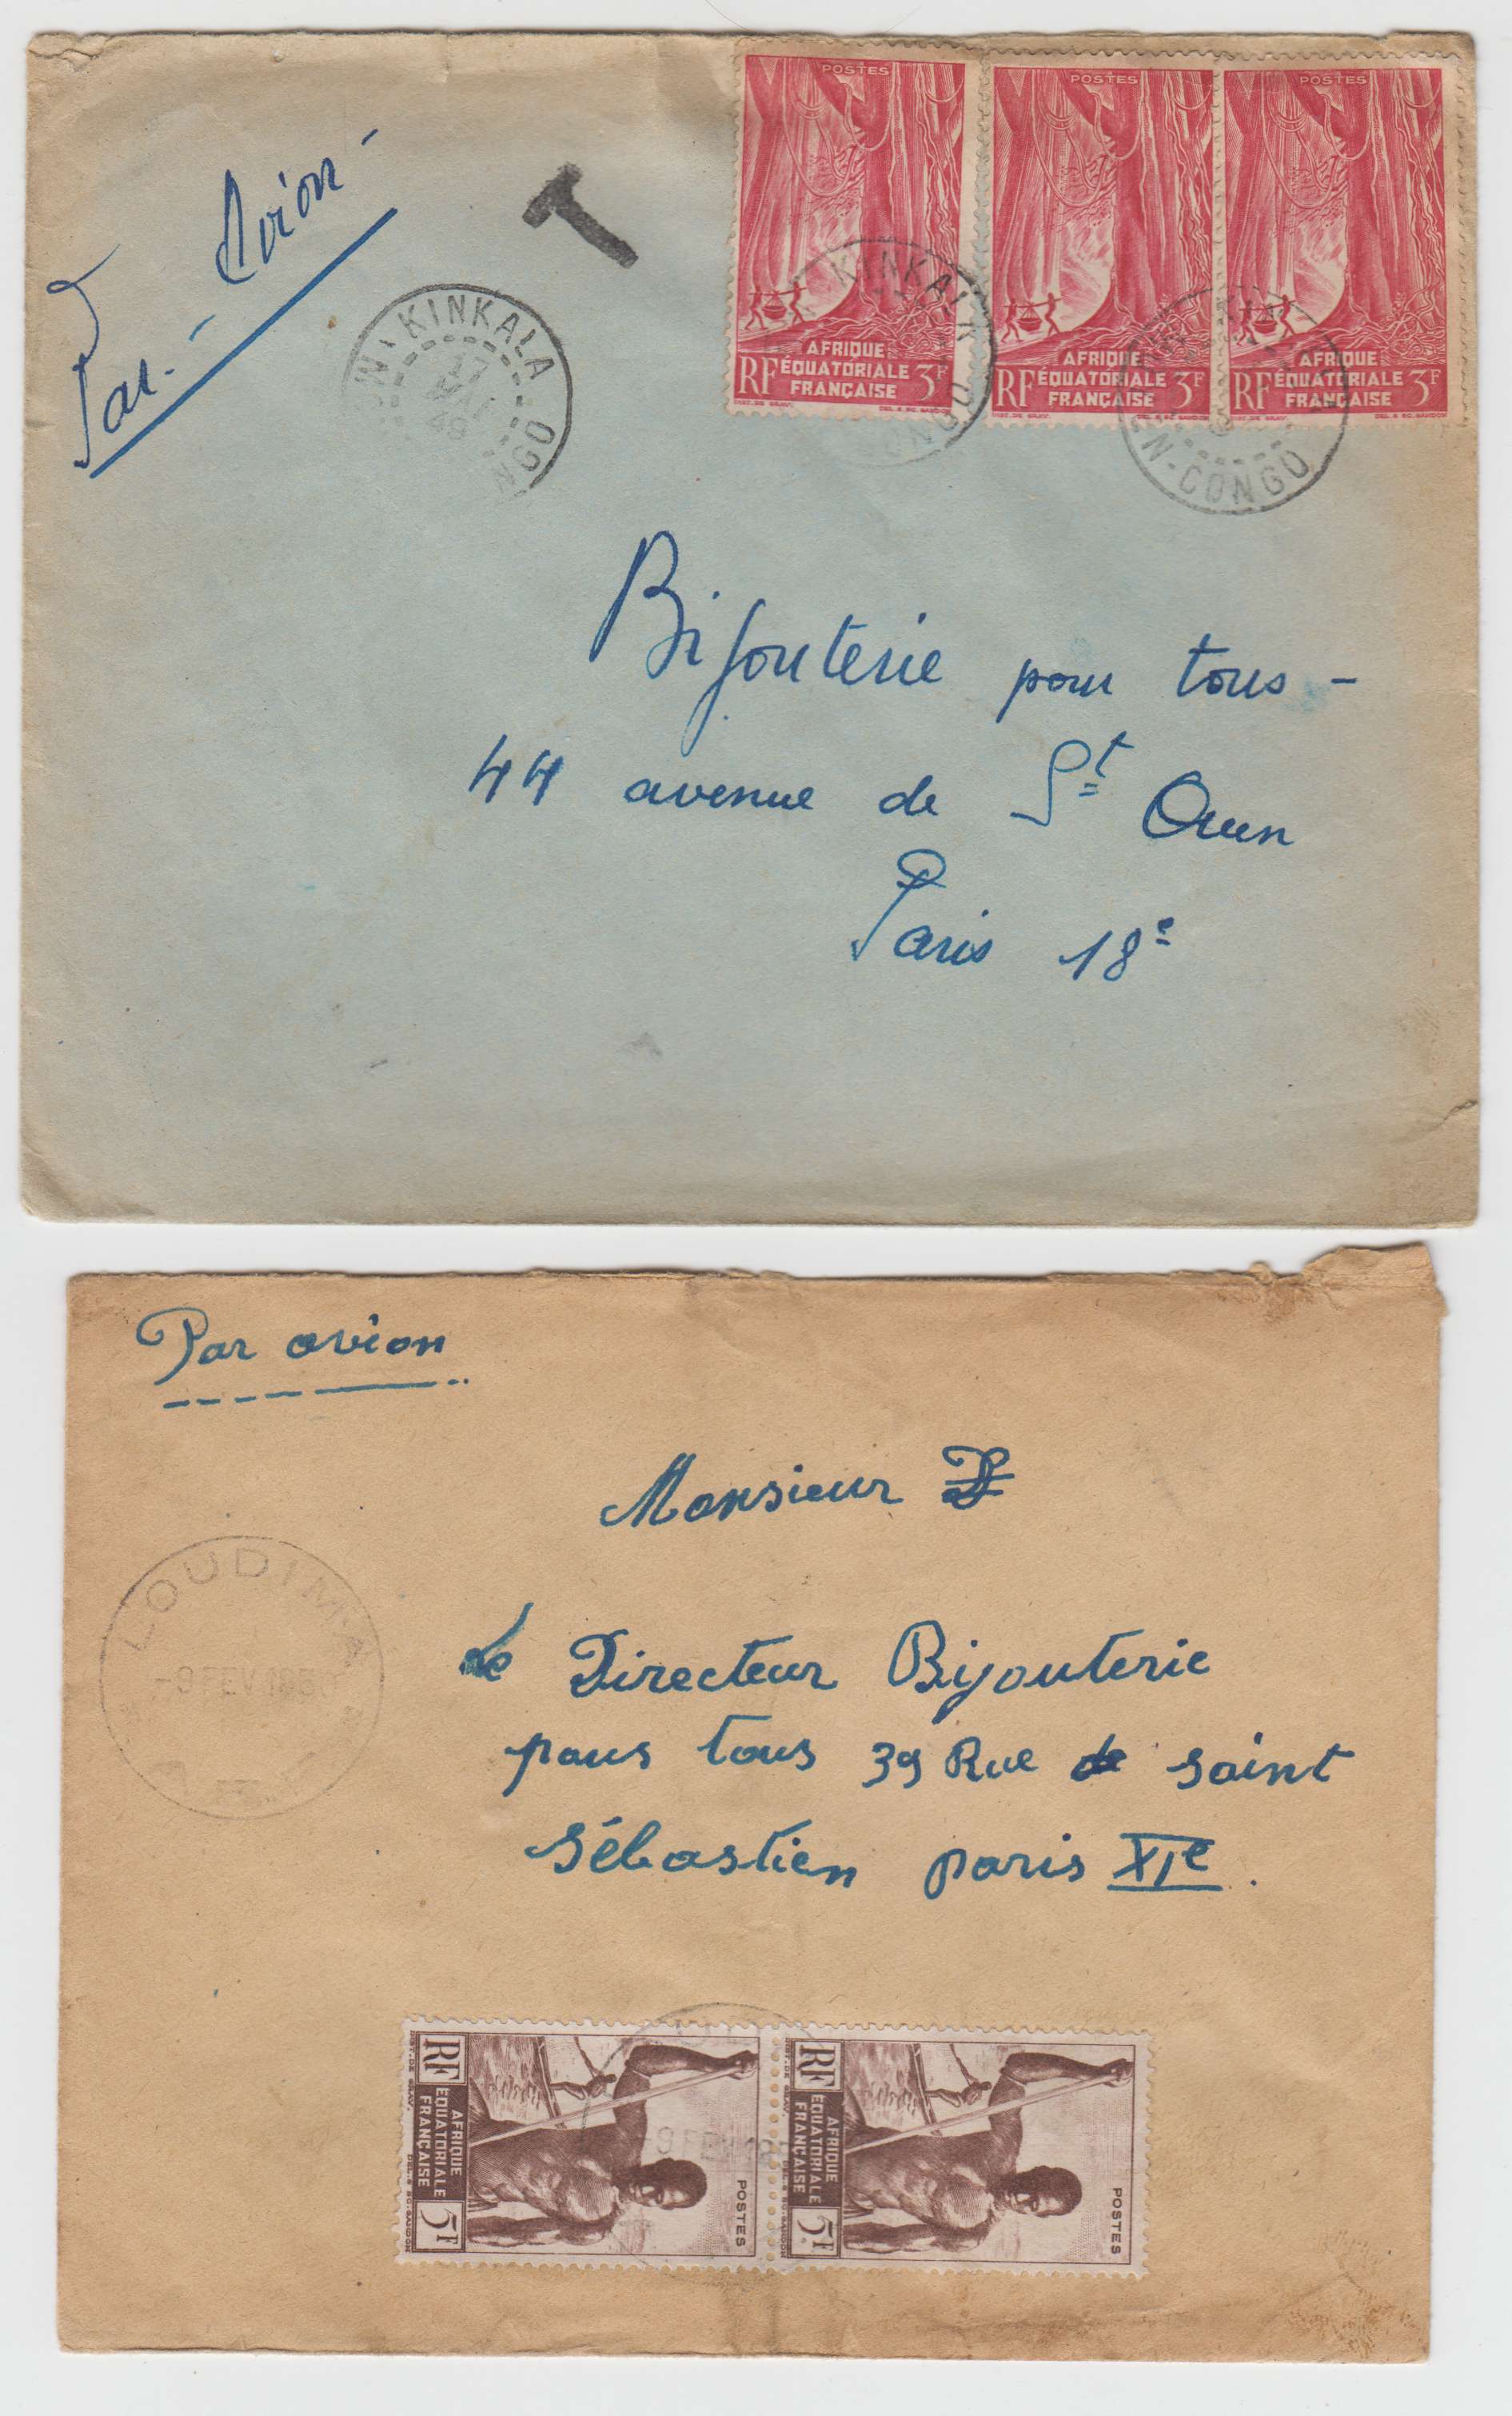 Par - Avion -
T
POSTES
POSTES
POSTES
KINKALA
17
MAI
49
KINKALA
CONGO
N-CONGO
RF AFRIQUE ÉQUATORIALE FRANÇAISE 3F
RF AFRIQUE ÉQUATORIALE FRANÇAISE 3F
RF AFRIQUE ÉQUATORIALE FRANÇAISE 3F
Bijouterie pour tous -
44 avenue de St Ouen
Paris 18e
Par avion
Monsieur
LOUDIMA
-9 FEV 195
Le Directeur Bijouterie
pous tous 39 Rue de saint
Sébastien paris XIe.
RF AFRIQUE EQUATORIALE FRANÇAISE 5F
POSTES
-9 FEV 195
RF AFRIQUE EQUATORIALE FRANÇAISE 5F
POSTES